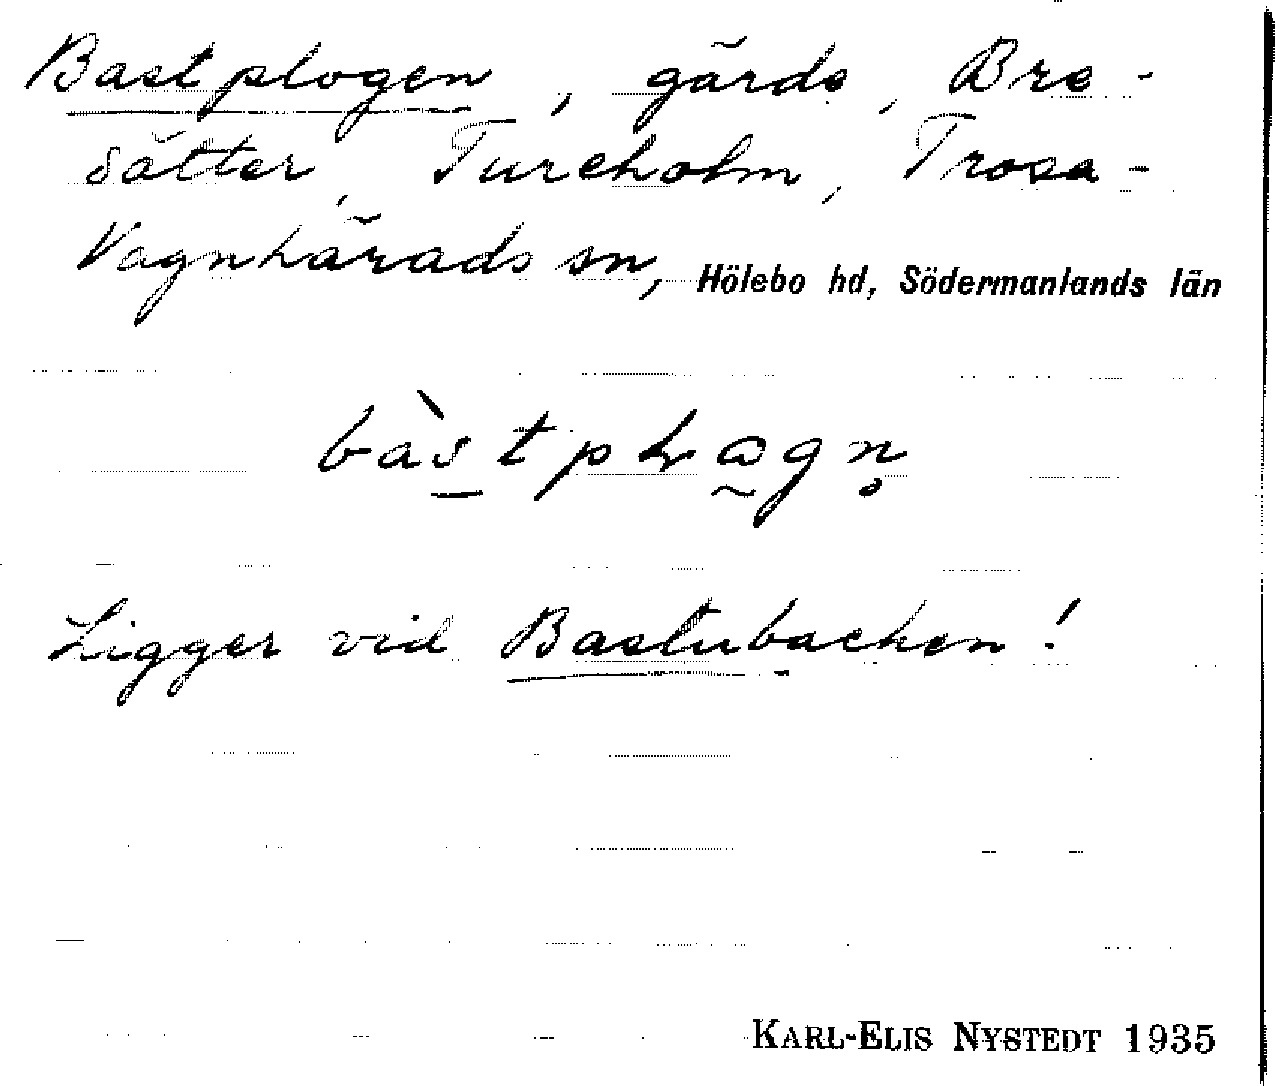 Bastplogen, gärds, Bre-
sätter, Tureholm, Trosa-
Vagnhärads sn, Hölebo hd, Södermanlands län
Ligger vid Bastubacken!
KARL-ELIS NYSTEDT 1935